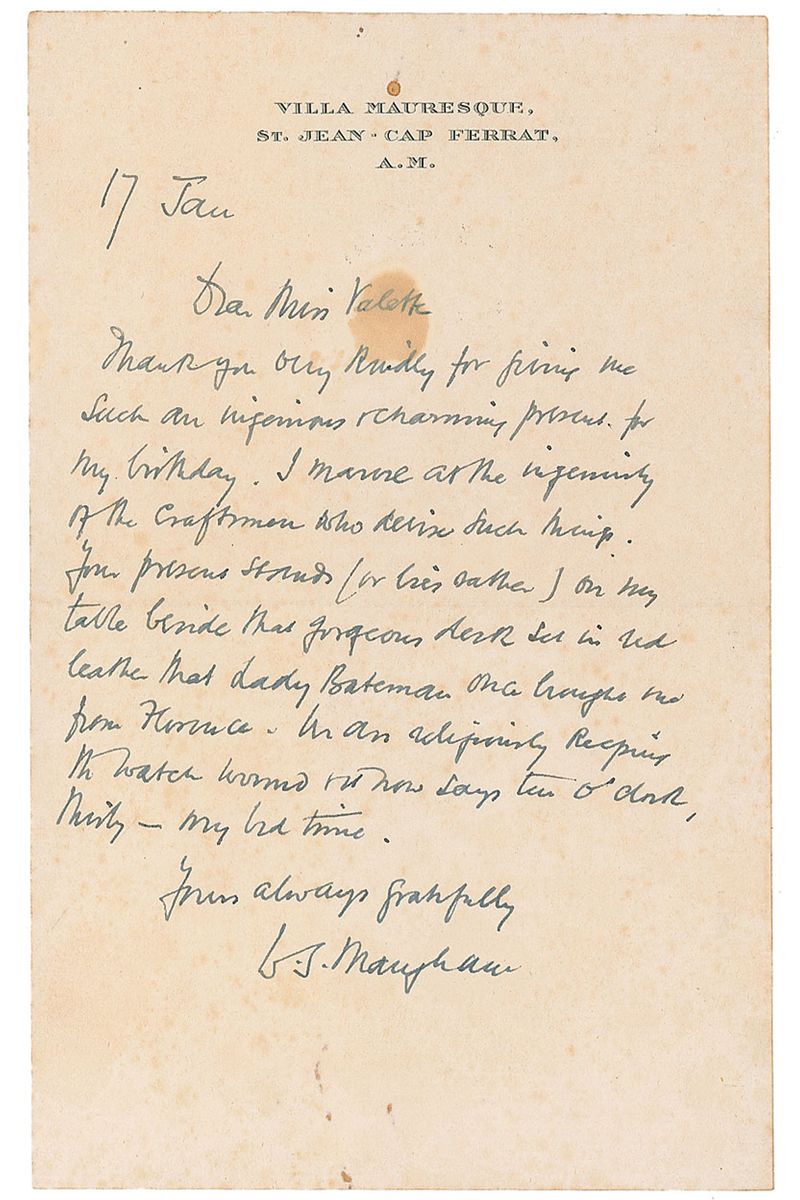 VILLA MAURESQUE,
ST. JEAN - CAP FERRAT,
A.M.
17 Jan
Dear Miss Valette
Thank you very kindly for giving me
such an ingenious & charming present for
my birthday. I marvel at the ingenuity
of the craftsmen who devise such things.
Your present stands (or lies rather) on my
table beside that gorgeous desk set in red
leather that Lady Bateman once brought me
from Florence. religiously keeping
the watch wound & it now says ten o'clock,
thirty — my bed time.
Yours always gratefully
W.S. Maugham